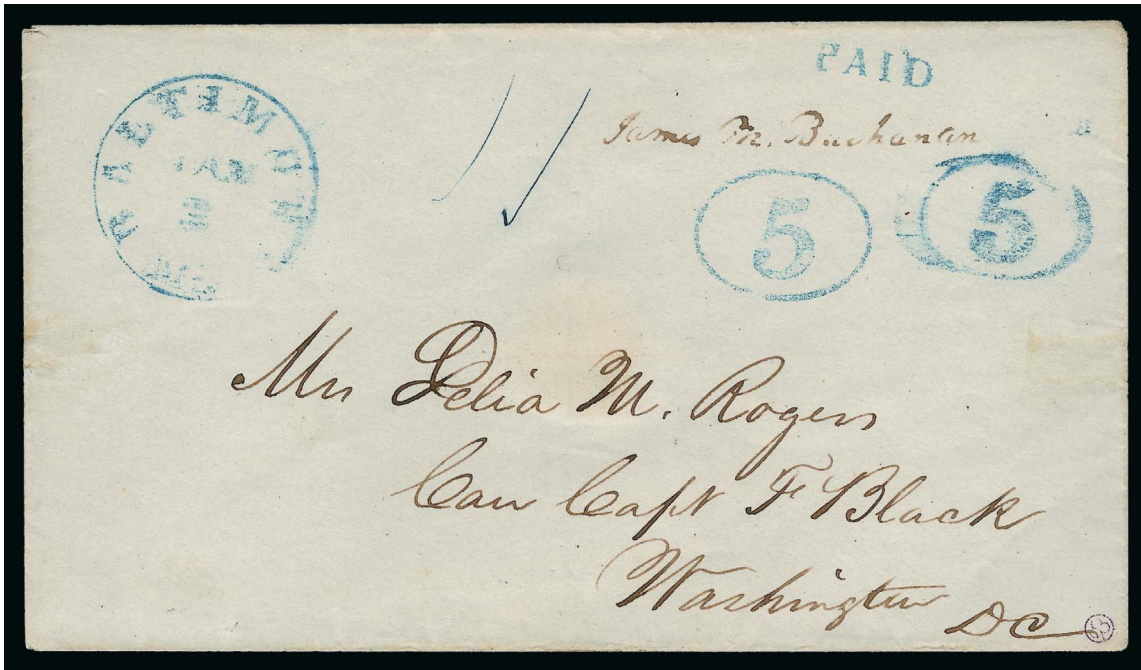 PAID
BALTIMORE Md.
JAN
3
James M. Buchanan
5
5
Mrs Delia M. Rogers
Care Capt F Black
Washington
DC